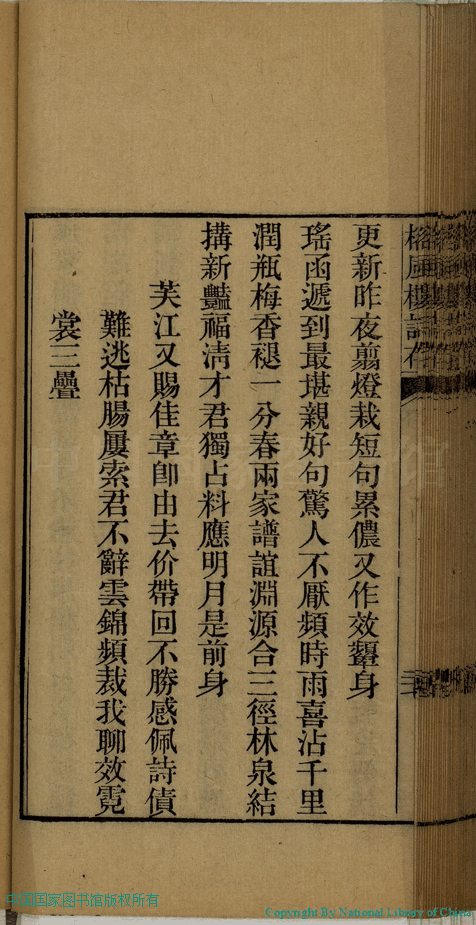 更新昨夜翦燈栽短句累儂又作效顰身
瑤函遞到最堪親好句驚人不厭頻時雨喜沾千里
潤瓶梅香褪一分春兩家譜誼淵源合三徑林泉結
搆新豔福淸才君獨占料應明月是前身
芙江又賜佳章卽由去价帶回不勝感佩詩債
難逃枯腸屢索君不辭雲錦頻裁我聊效霓
裳三疊
国家图书馆版权所有
Copyright By National Library of China